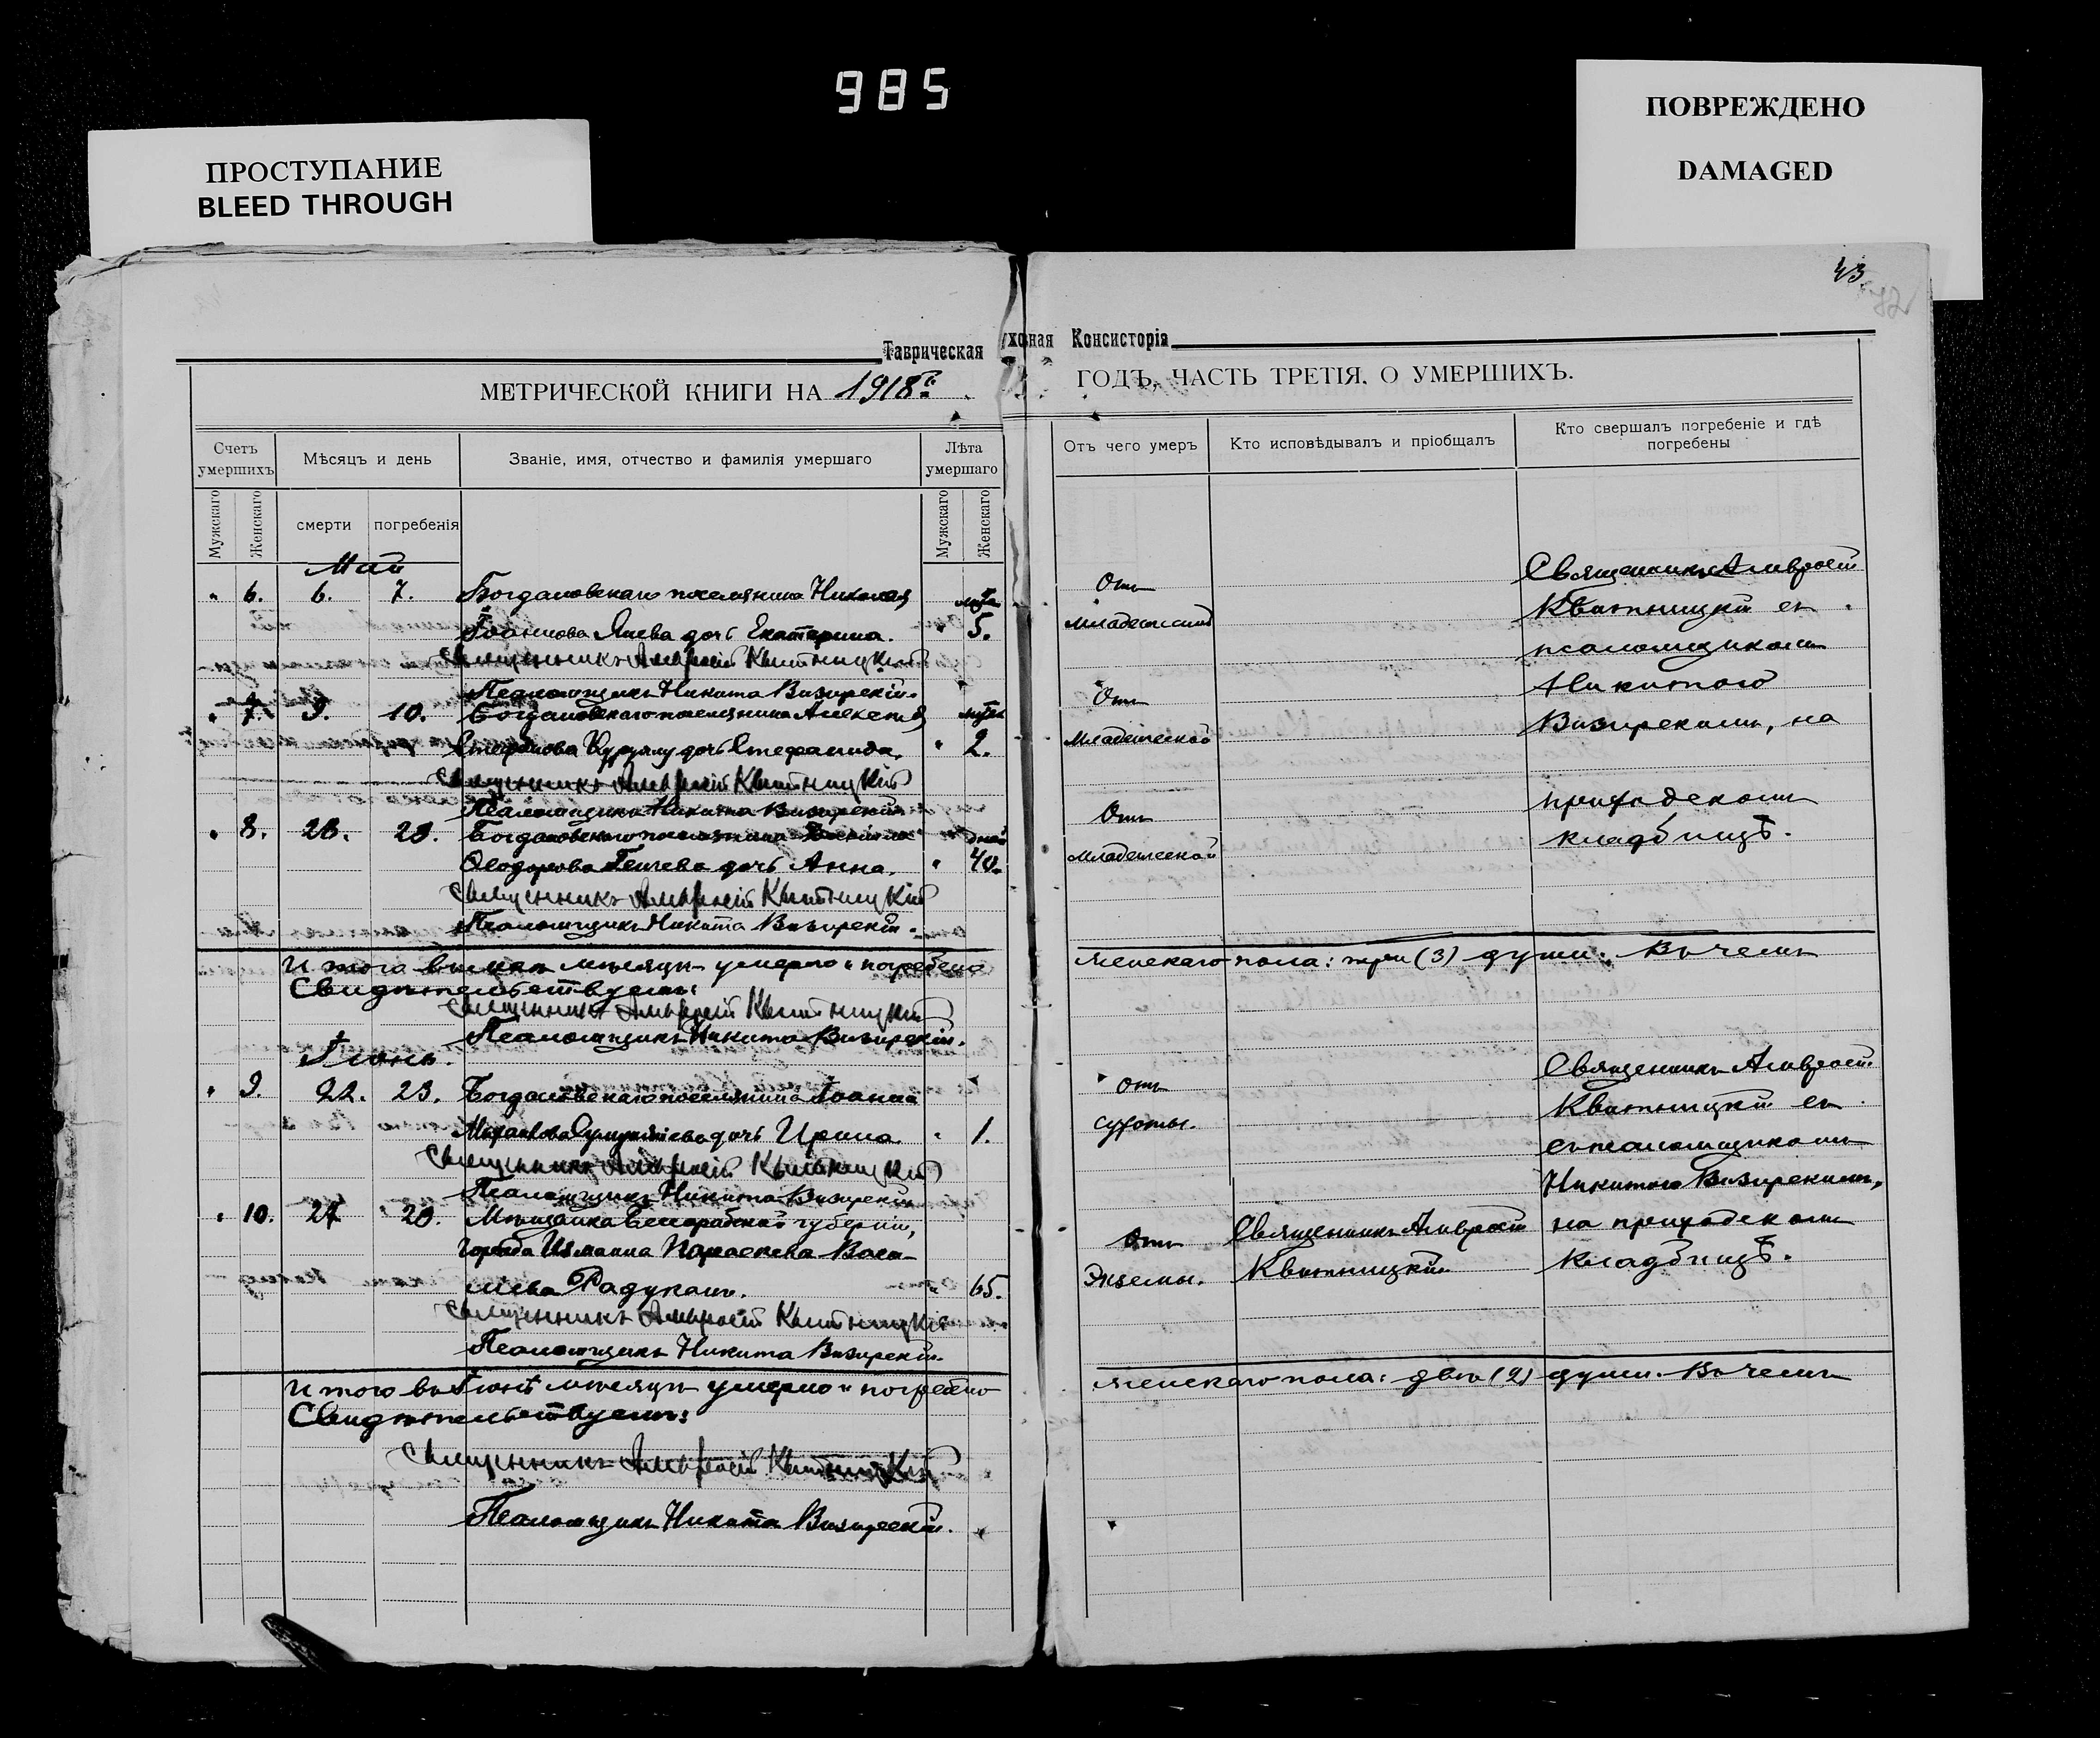 985
ПРОСТУПАНИЕ
BLEED THROUGH
ПОВРЕЖДЕНО
DAMAGED
43.
Таврическая
ховная Консисторія
МЕТРИЧЕСКОЙ КНИГИ НА 1918 г.
ГОДЪ, ЧАСТЬ ТРЕТІЯ, О УМЕРШИХЪ.
Счетъ умершихъ
Мѣсяцъ и день
Званіе, имя, отчество и фамилія умершаго
Лѣта умершаго
Отъ чего умеръ
Кто исповѣдывалъ и пріобщалъ
Кто свершалъ погребеніе и гдѣ погребены
Мужскаго
Женскаго
смерти
погребенія
Мужскаго
Женскаго
Май
" 6. 6. 7. Богдановскаго поселянина Николая
Іоаннова дочь Екатерина. " 5.
Священникъ Амвросій Квитницкій
Псаломщикъ Никита Визирскій.
" 7. 9. 10. Богдановскаго поселянина Алексѣя
Стефанова дочь Стефанида. " 2.
Священникъ Амвросій Квитницкій
Псаломщикъ Никита Визирскій.
" 8. 28. 29. Богдановскаго поселянина дней
Ѳеодорова дочь Анна. " 40.
Священникъ Амвросій Квитницкій
Псаломщикъ Никита Визирскій.
Отъ
Отъ
младенческой
Отъ
младенческой
Священникъ Амвросій
Квитницкій съ
псаломщикомъ
Никитою
Визирскимъ, на
приходскомъ
кладбищѣ.
Итого въ маѣ мѣсяцѣ умерло и погребено
женскаго пола: три (3) души. Въ чемъ
Свидѣтельствуемъ:
Священникъ Амвросій Квитницкій
Псаломщикъ Никита Визирскій.
Іюнь.
" 9. 22. 23. Богдановскаго поселянина Іоанна
дочь Ирина. " 1.
Священникъ Амвросій Квитницкій
Псаломщикъ Никита Визирскій.
" 10. 27 28. Мѣщанка Бессарабской губерніи,
города Измаила Параскева Васи-
льева Радуканъ. " 65.
Священникъ Амвросій Квитницкій
Псаломщикъ Никита Визирскій.
отъ
сухоты.
Отъ
Экземы.
Священникъ Амвросій
Квитницкій.
Священникъ Амвросій
Квитницкій съ
съ псаломщикомъ
Никитою Визирскимъ,
на приходскомъ
кладбищѣ.
Итого въ Іюнѣ мѣсяцѣ умерло и погребено
женскаго пола: двѣ (2) души. Въ чемъ
Свидѣтельствуемъ:
Священникъ Амвросій Квитницкій
Псаломщикъ Никита Визирскій.